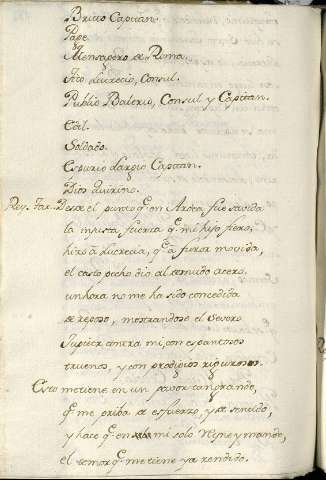 Bruto Capitan.
Page.
Un Mensagero de Roma.
Tito Lucrecio, Consul.
Publio Balerio, Consul y Capitan.
Edil.
Soldado.
Espurio Largio Capitan.
Dios Quirino.
Rey. Tar. Desde el punto q.e en Ardea fue savida
la injusta fuerza q.e mi hijo fiero,
hizo à Lucrecia, q.e à furor movida,
el casto pecho dio al desnudo acero,
un hora no me ha sido concedida
de reposo, mostrandose el severo
Jupiter contra mi, con espantosos
truenos, y con prodigios rigurosos.
Esto me tiene en un pavor tan grande,
q.e me priba de esfuerzo, y de sentido,
y hace q.e en mi solo Reyne y mande,
el temor q.e me tiene ya rendido.